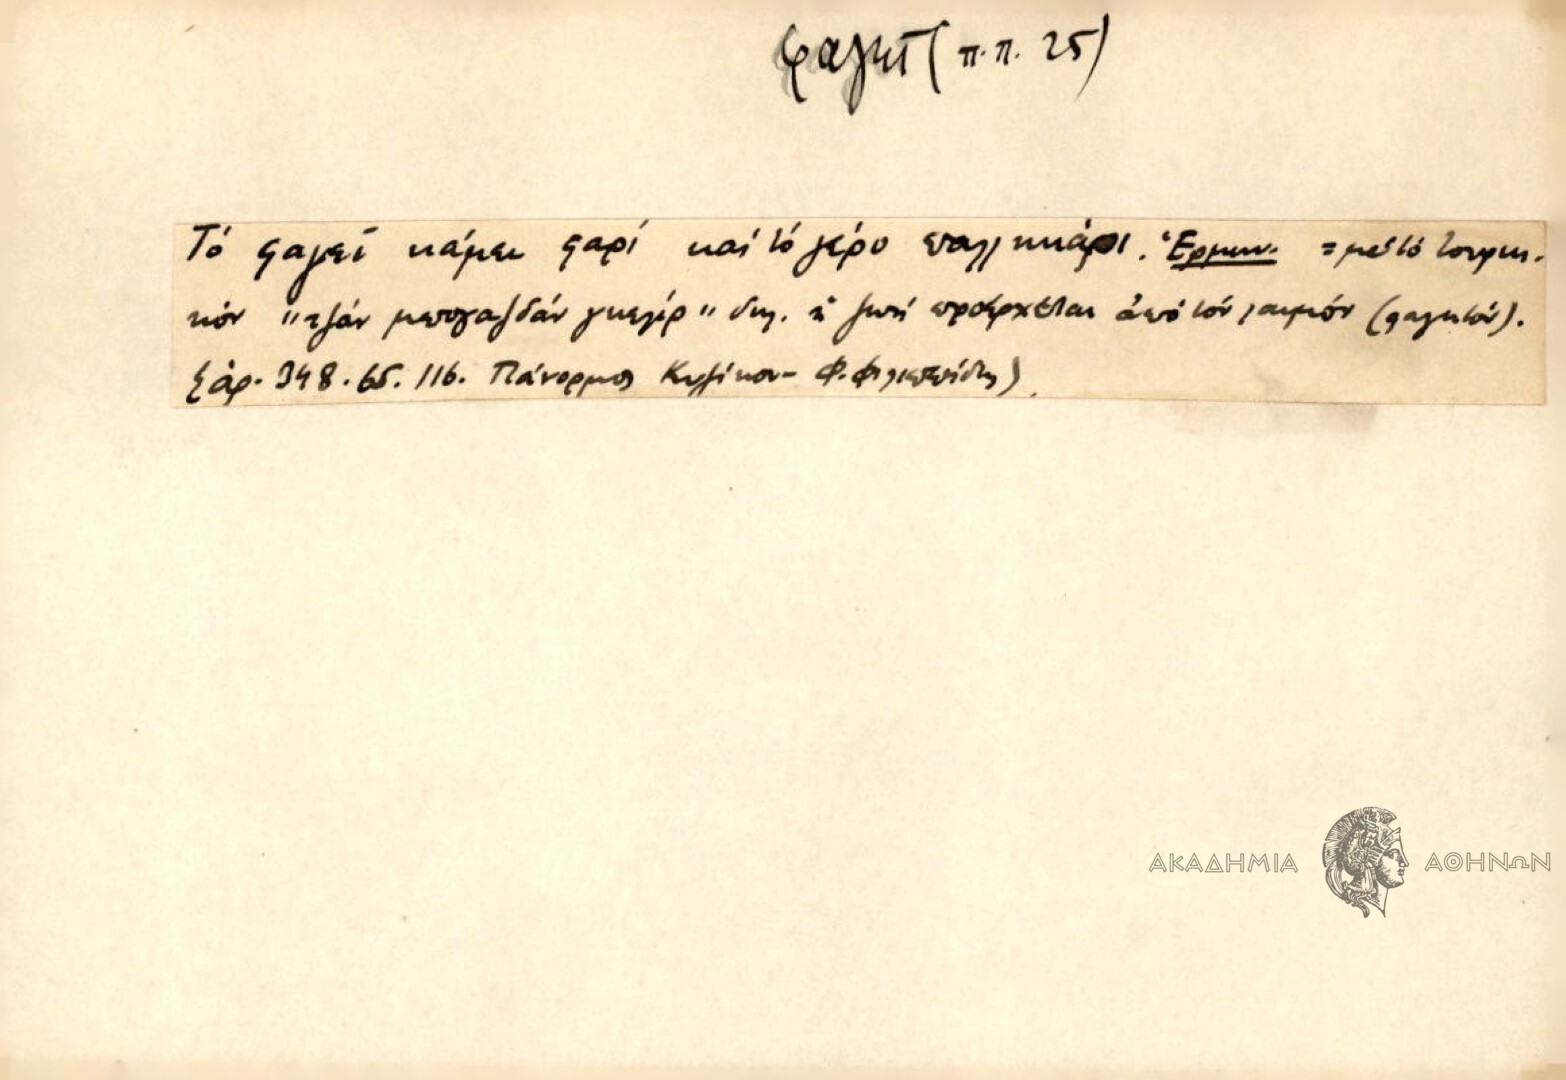 φαγητ (π.π. 25)
Τό φαγεΐ κάμει φαρί καί τό γέρο παλληκάρι. Ἑρμην. = μέ τό τουρκι-
κόν "τζάν μπογαζδάν γκελίρ" δηλ. ἡ ζωή προέρχεται ἀπό τόν λαιμόν (φαγητόν).
(ἀρ. 348. 65. 116. Πάνορμος Κυζίκου - Φ. Φιλιππίδης)
ΑΚΑΔΗΜΙΑ ΑΘΗΝΩΝ